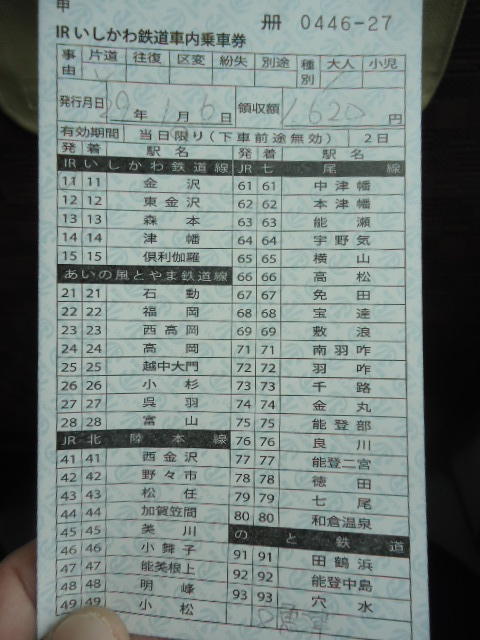 申
冊 0446-27
IRいしかわ鉄道車内乗車券
事由 片道 往復 区変 紛失 別途 種別 大人 小児
発行月日 29年 1月 6日 領収額 1,620円
有効期間 当日限り(下車前途無効) 2日
発 着 駅名 発 着 駅名
IRいしかわ鉄道線 JR七尾線
11 11 金沢 61 61 中津幡
12 12 東金沢 62 62 本津幡
13 13 森本 63 63 能瀬
14 14 津幡 64 64 宇野気
15 15 倶利伽羅 65 65 横山
あいの風とやま鉄道線 66 66 高松
21 21 石動 67 67 免田
22 22 福岡 68 68 宝達
23 23 西高岡 69 69 敷浪
24 24 高岡 71 71 南羽咋
25 25 越中大門 72 72 羽咋
26 26 小杉 73 73 千路
27 27 呉羽 74 74 金丸
28 28 富山 75 75 能登部
JR北陸本線 76 76 良川
41 41 西金沢 77 77 能登二宮
42 42 野々市 78 78 徳田
43 43 松任 79 79 七尾
44 44 加賀笠間 80 80 和倉温泉
45 45 美川 のと鉄道
46 46 小舞子 91 91 田鶴浜
47 47 能美根上 92 92 能登中島
48 48 明峰 93 93 穴水
49 49 小松